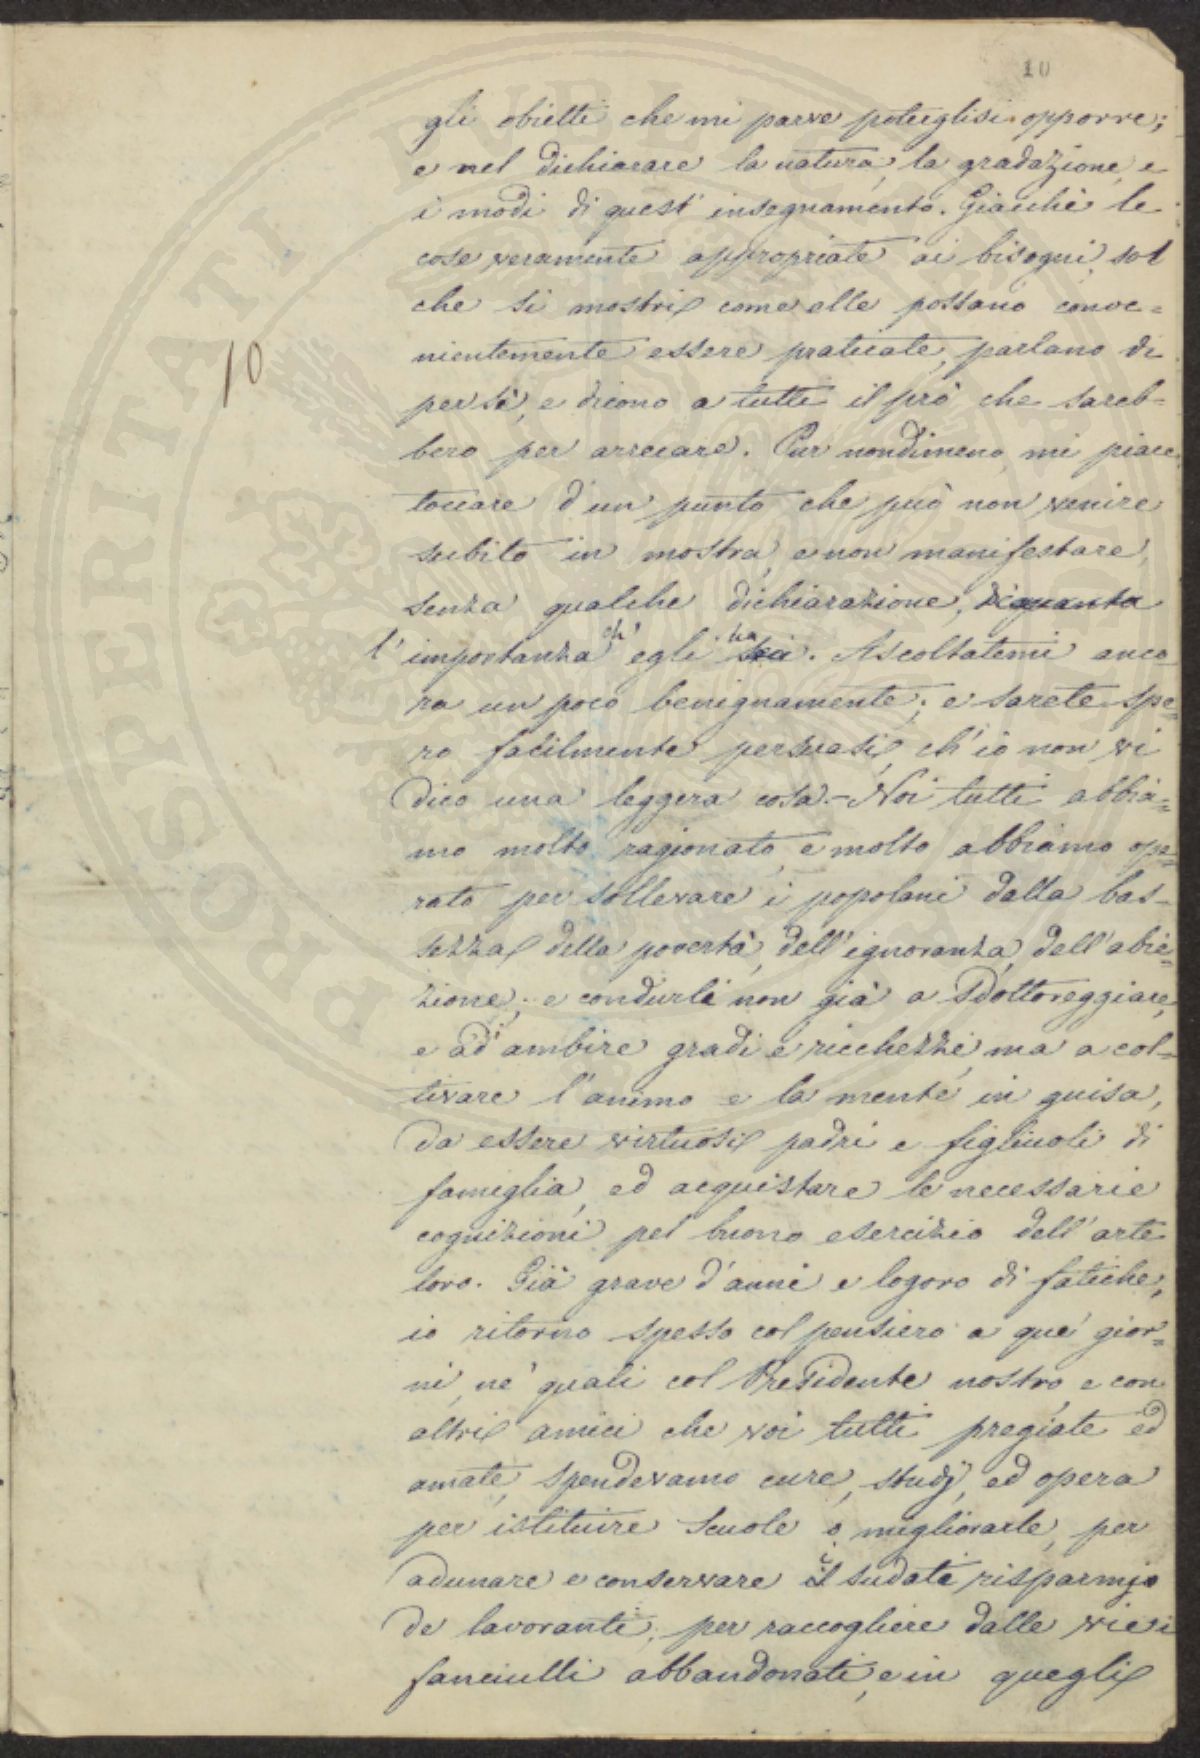 10
gli obietti che mi parve poteglisi opporre;
e nel dichiarare la natura, la gradazione, e
i modi di quest' insegnamento. Giacchè le
cose veramente appropriate ai bisogni, sol
che si mostri come elle possano conve=
nientemente essere praticate, parlano di
per sè, e dicono a tutti il prò che sareb=
bero per arrecare. Pur nondimeno, mi piace
toccare d'un punto che può non venire
subito in mostra, e non manifestare,
senza qualche dichiarazione, di quanta
l' importanza ch' egli ha sia. Ascoltatemi anco
ra un poco benignamente; e sarete spe=
ro facilmente persuasi, ch' io non vi
dico una leggera cosa. - Noi tutti abbia=
mo molto ragionato, e molto abbiamo ope=
rato per sollevare i popolani dalla bas=
sezza della povertà, dell'ignoranza, dell'abie=
zione; e condurli non già a Dottoreggiare,
e ad ambire gradi e ricchezze, ma a col=
tivare l'animo e la mente in guisa,
da essere virtuosi padri e figliuoli di
famiglia, ed acquistare le necessarie
cognizioni pel buono esercizio dell' arte
loro. Già grave d'anni e logoro di fatiche,
io ritorno spesso col pensiero a que' gior=
ni, ne' quali col Presidente nostro, e con
altri amici che voi tutti pregiate ed
amate, spendevamo cure, studj, ed opera
per istituire Scuole o migliorarle, per
adunare e conservare il i sudati risparmj
de' lavoranti; per raccogliere dalle vie i
fanciulli abbandonati, e in quegli
10
PROSPERITATI PUBLICAE